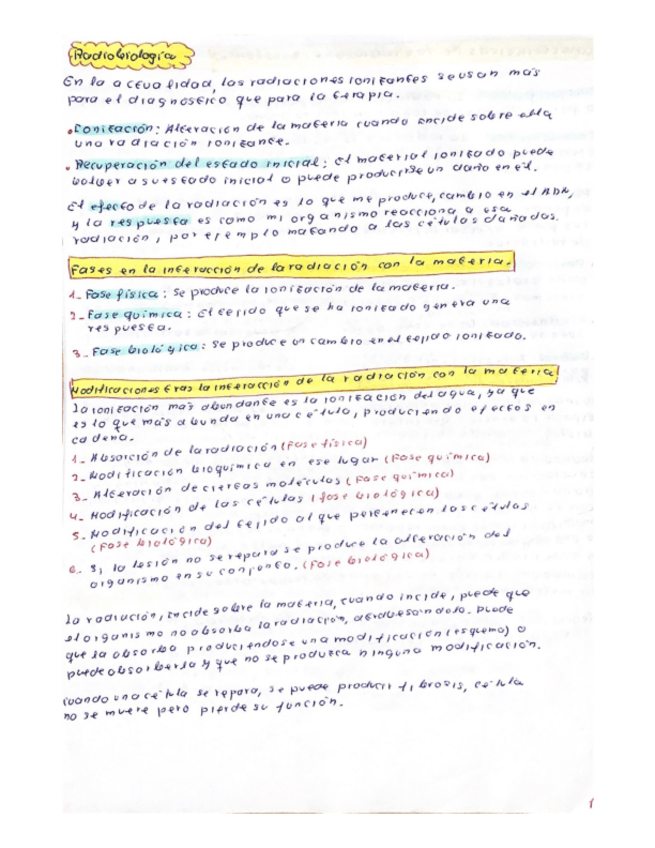 Radiobiologia
En la actualidad, las radiaciones ionizantes se usan más
para el diagnóstico que para la terapia.
• Ionización: Alteración de la materia cuando incide sobre ella
una radiación ionizante.
• Recuperación del estado inicial: El material ionizado puede
volver a su estado inicial o puede producirse un daño en él.
El efecto de la radiación es lo que me produce, cambio en el ADN,
y la respuesta es como mi organismo reacciona a esa
radiación, por ejemplo matando a las células dañadas.
Fases en la interacción de la radiación con la materia.
1- Fase física: Se produce la ionización de la materia.
2- Fase química: El tejido que se ha ionizado genera una
respuesta.
3- Fase biológica: Se produce un cambio en el tejido ionizado.
Modificaciones tras la interacción de la radiación con la materia
La ionización más abundante es la ionización del agua, ya que
es lo que más abunda en una célula, produciendo efectos en
cadena.
1- Absorción de la radiación (Fase física)
2- Modificación bioquímica en ese lugar (Fase química)
3- Alteración de ciertas moléculas (Fase química)
4- Modificación de las células (fase biológica)
5- Modificación del tejido al que pertenecen las células
(Fase biológica)
6- Si la lesión no se repara se produce la alteración del
organismo en su conjunto. (Fase biológica)
La radiación, incide sobre la materia, cuando incide, puede que
el organismo no absorba la radiación, atravesandolo. Puede
que la absorba produciendose una modificación (esquema) o
puede absorberla y que no se produzca ninguna modificación.
Cuando una célula se repara, se puede producir fibrosis, célula
no se muere pero pierde su función.
1